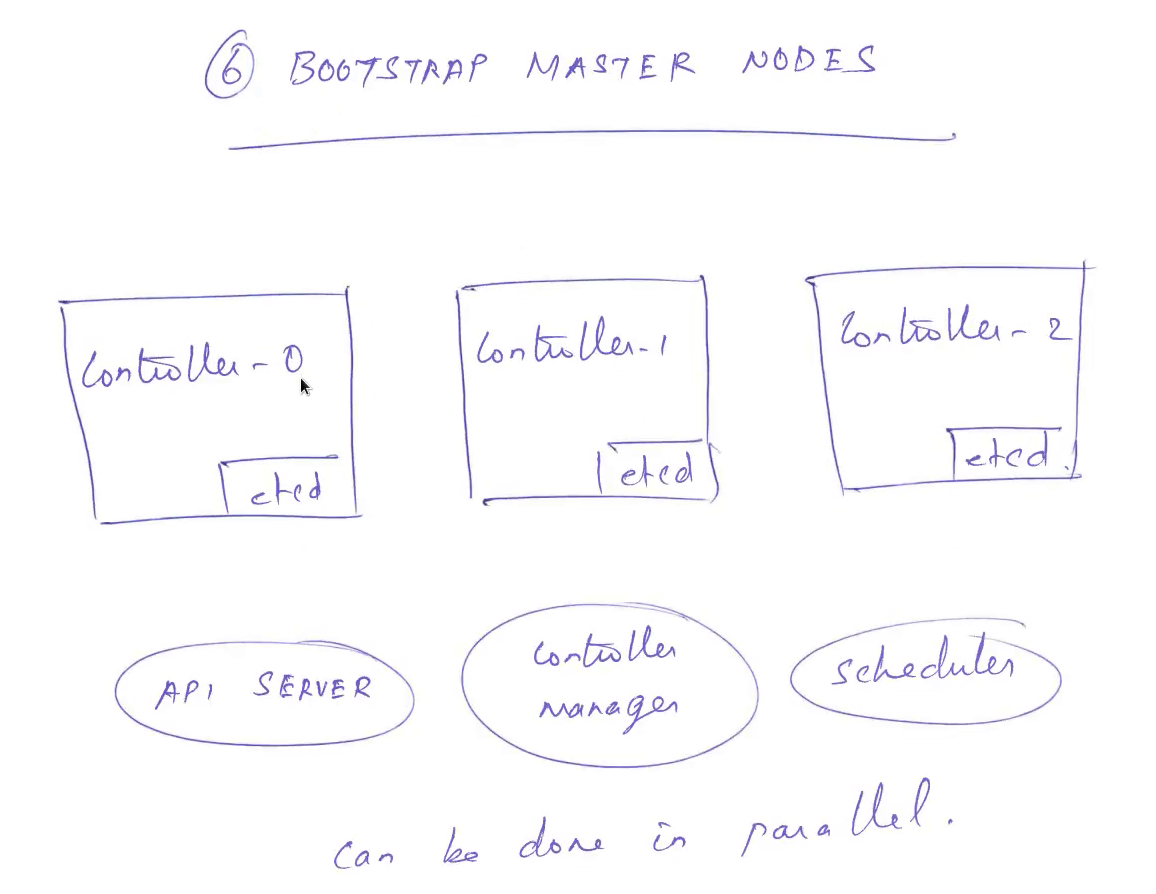 6 BOOTSTRAP MASTER NODES
Controller - 0
Controller - 1
Controller - 2
etcd
etcd
etcd
API SERVER
Controller
manager
scheduler
can be done in parallel.